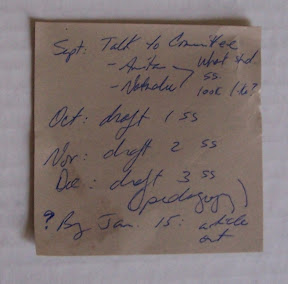 Sept: Talk to Committee
- Anita
- Natalie
What shd
ss
look like?
Oct: draft 1 ss
Nov: draft 2 ss
Dec: draft 3 ss
(pedagogy)
? By Jan. 15: article
out